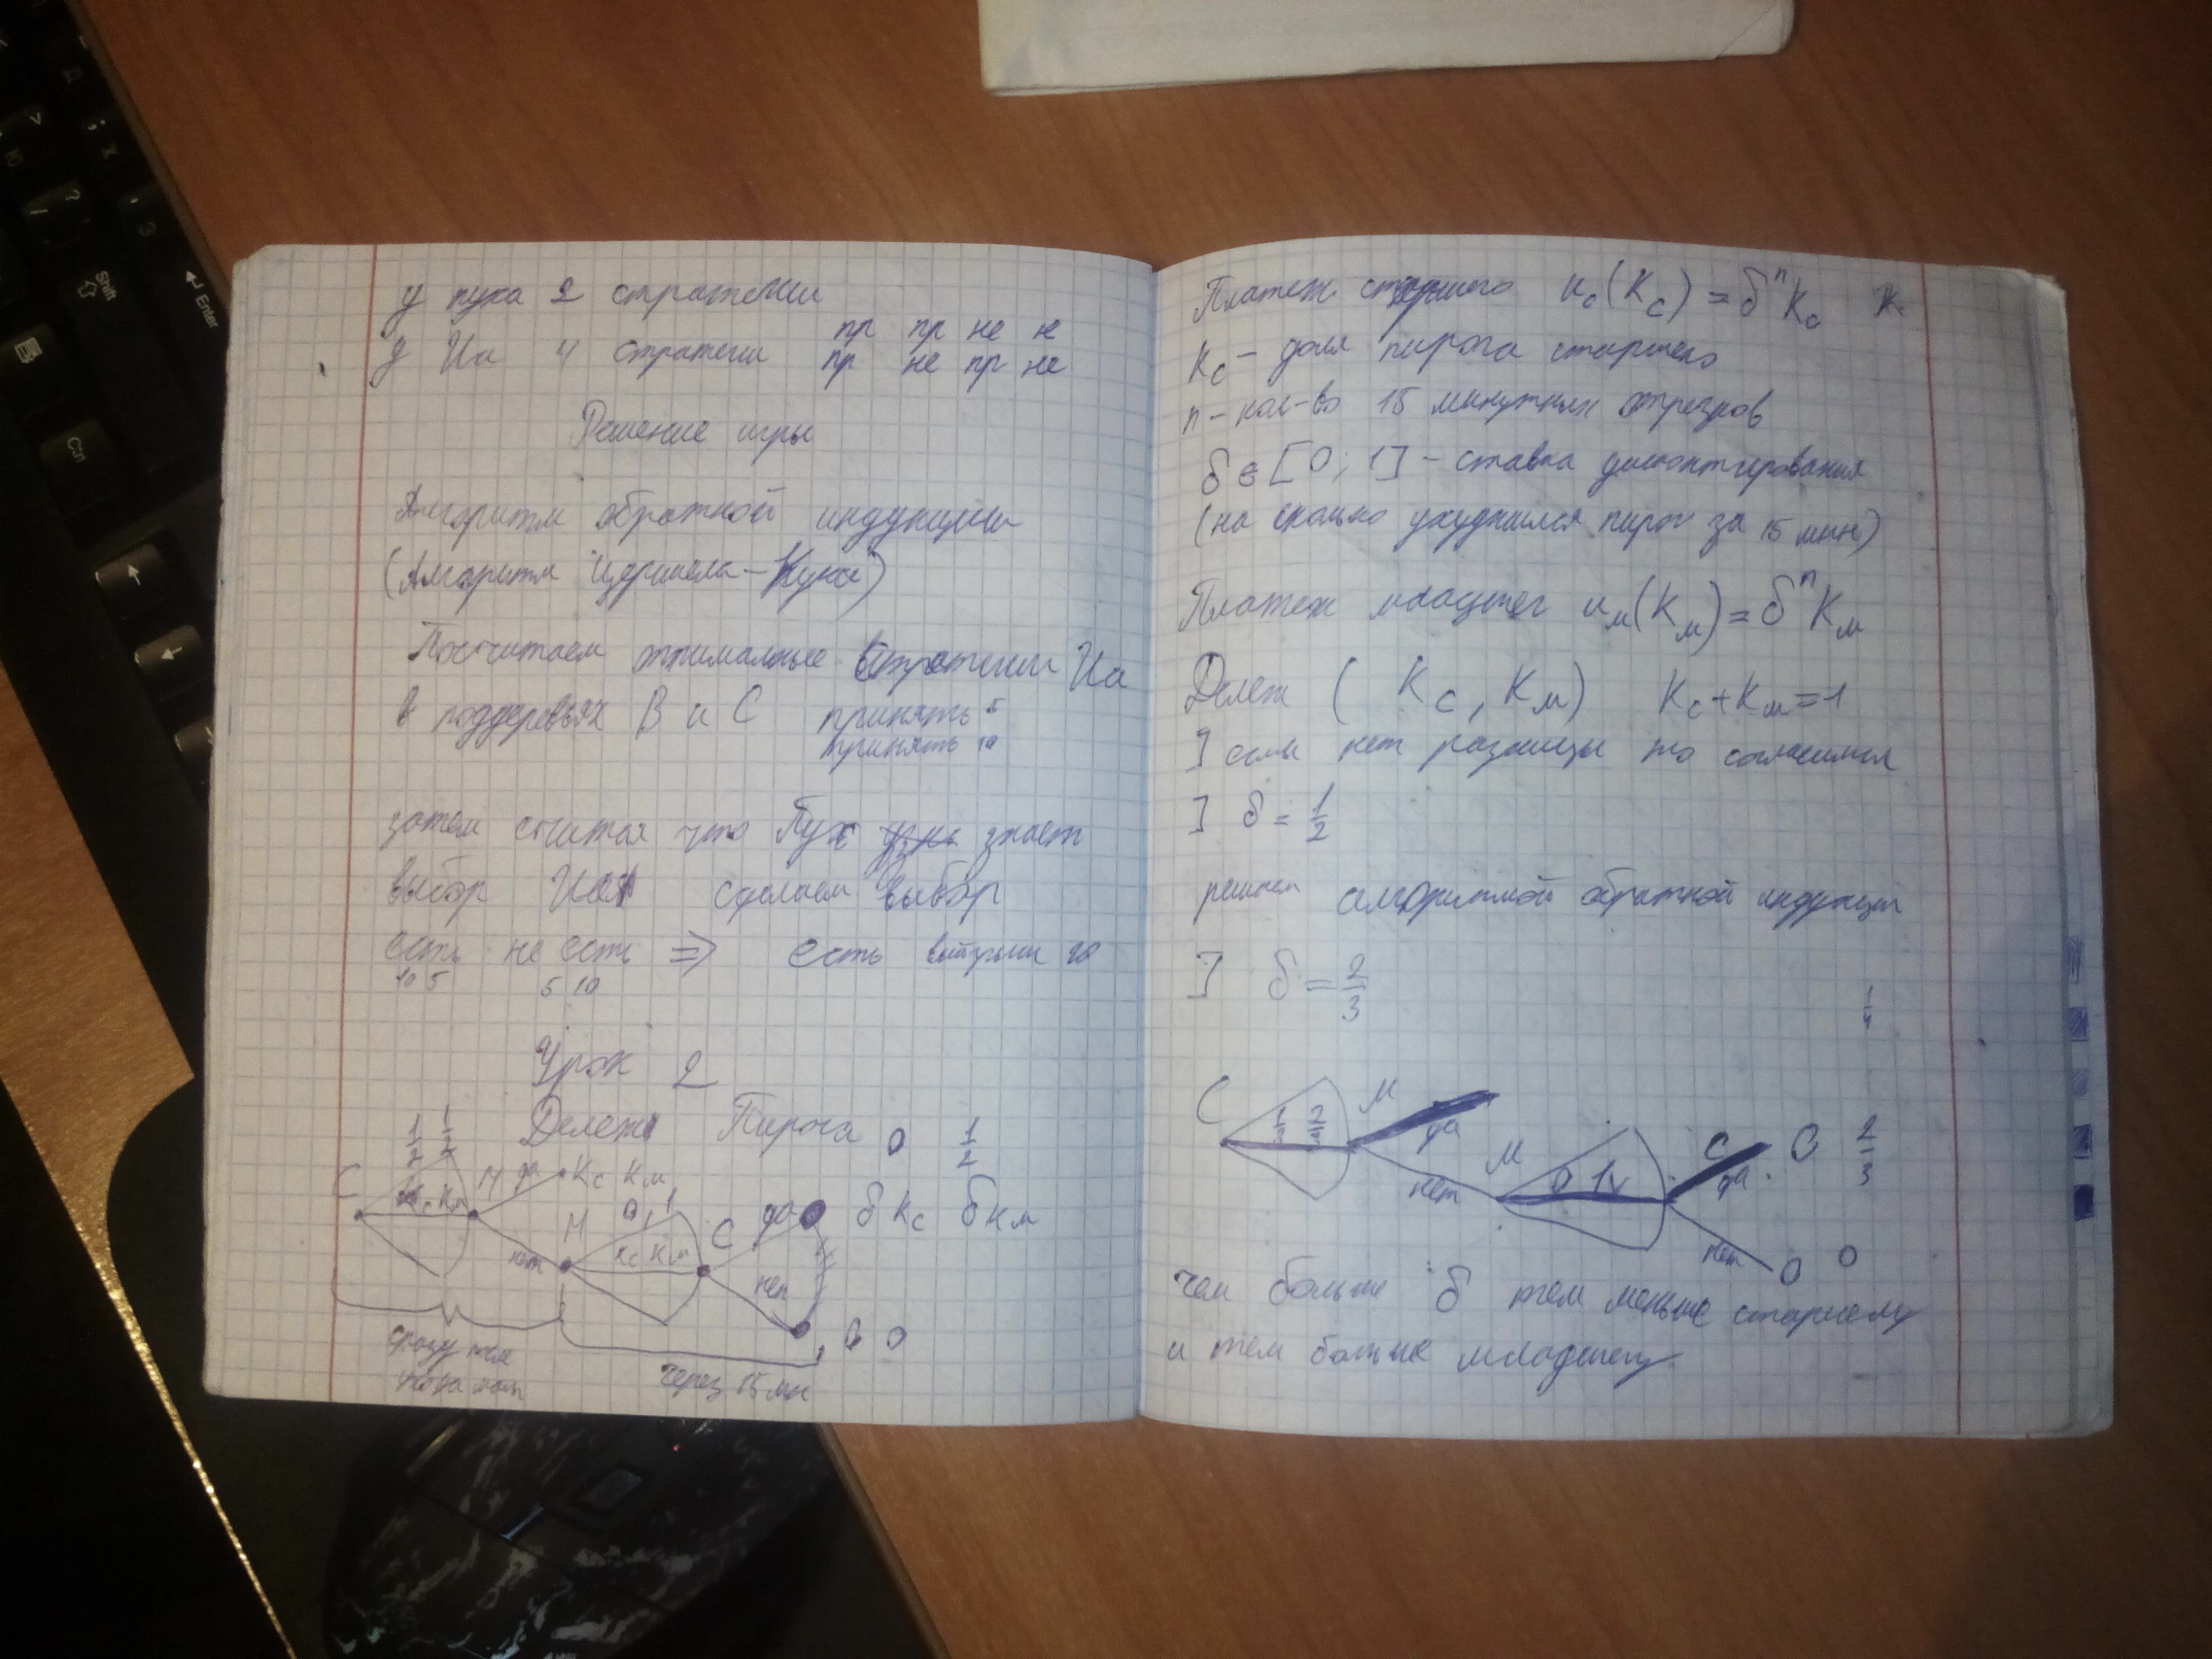 у пуха 2 стратегии
пр пр не не
У Иа 4 стратегии пр не пр не
Решение игры
Алгоритм обратной индукции
(Алгоритм Цермела-Куна)
Посчитаем оптимальные стратегии Иа
в поддеревьях B и C принять 5
принять 10
затем считая что Пух знает
выбор Иа сделаем выбор
есть не есть => есть
10 5 5 10
Урок 2
Дележ Пирога
1/2 1/2
0 1/2
С Kс Kм М да Kс Kм
М 0, 1 Kс Kм С да δKс δKм
нет нет 0 0
сразу
через 15 мин
Платеж старшего uс(Kс) = δⁿKс K
Kс - доля пирога старшего
n - кол-во 15 минутных отрезков
δ ∈ [0; 1] - ставка дисконтирования
(на сколько ухудшился пирог за 15 мин)
Платеж младшег uм(Kм) = δⁿKм
Дележ (Kс, Kм) Kс+Kм=1
] если нет разницы то согласимся
] δ = 1/2
решаем алгоритмой обратной индукции
] δ = 2/3
1/4
С 1/3 2/3 М да
нет М 0 1 С да 0 2/3
нет 0 0
чем больше δ тем меньше старшему
и тем больше младшему